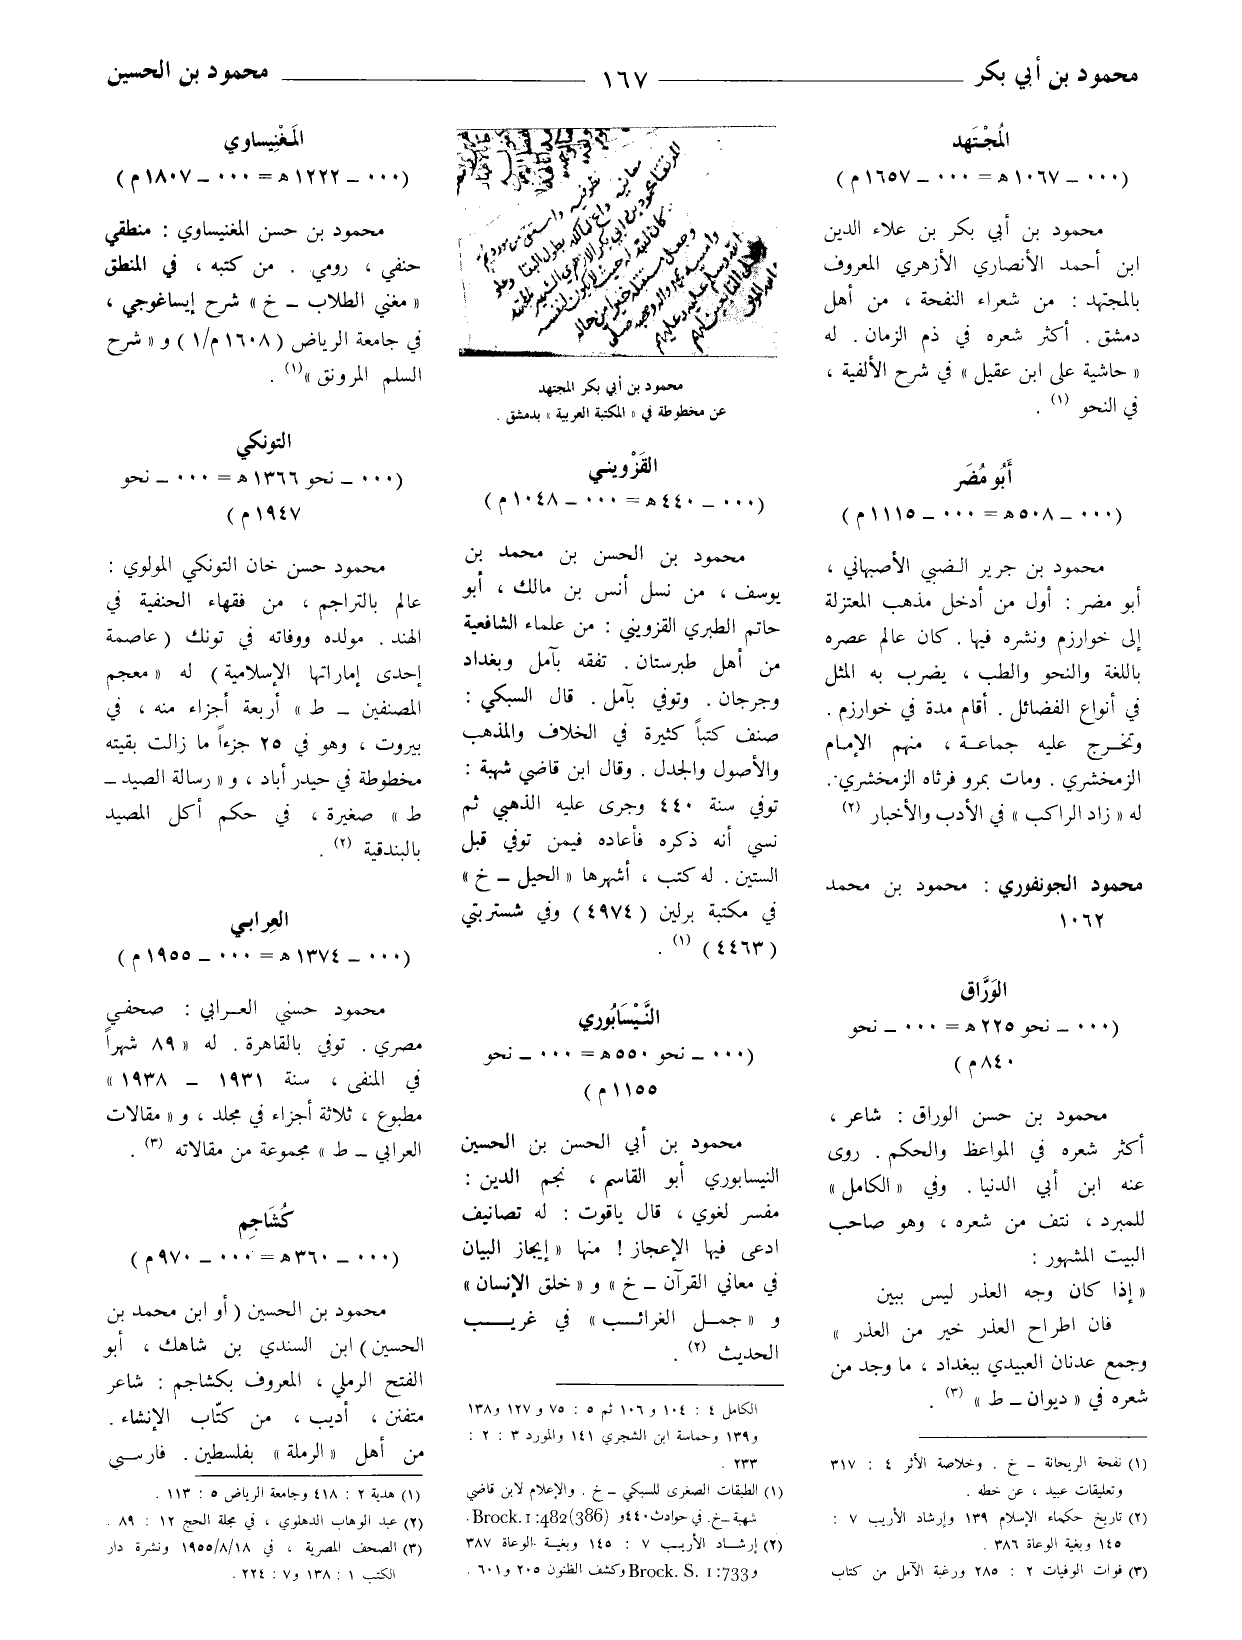 محمود بن أبي بكر ــــ ١٦٧ ــــ محمود بن الحسين
المُجْتَهد
(٠٠٠ ــ ١٠٦٧ ه = ٠٠٠ ــ ١٦٥٧ م)
محمود بن أبي بكر بن علاء الدين
ابن أحمد الأنصاري الأزهري المعروف
بالمجتهد : من شعراء النفحة ، من أهل
دمشق . أكثر شعره في ذم الزمان . له
« حاشية على ابن عقيل » في شرح الألفية ،
في النحو (١) .
أَبُو مُضَر
(٠٠٠ ــ ٥٠٨ ه = ٠٠٠ ــ ١١١٥ م)
محمود بن جرير الضبي الأصبهاني ،
أبو مضر : أول من أدخل مذهب المعتزلة
إلى خوارزم ونشره فيها . كان عالم عصره
باللغة والنحو والطب ، يضرب به المثل
في أنواع الفضائل . أقام مدة في خوارزم .
وتخرج عليه جماعة ، منهم الإمام
الزمخشري . ومات بمرو فرثاه الزمخشري .
له « زاد الراكب » في الأدب والأخبار (٢)
محمود الجونفوري : محمود بن محمد
١٠٦٢
الوَرَّاق
(٠٠٠ ــ نحو ٢٢٥ ه = ٠٠٠ ــ نحو
٨٤٠ م)
محمود بن حسن الوراق : شاعر ،
أكثر شعره في المواعظ والحكم . روى
عنه ابن أبي الدنيا . وفي « الكامل »
للمبرد ، نتف من شعره ، وهو صاحب
البيت المشهور :
« إذا كان وجه العذر ليس ببين
فان اطراح العذر خير من العذر »
وجمع عدنان العبيدي ببغداد ، ما وجد من
شعره في « ديوان ــ ط » (٣) .
(١) نفحة الريحانة ــ خ . وخلاصة الأثر ٤ : ٣١٧
وتعليقات عبيد ، عن خطه .
(٢) تاريخ حكماء الإسلام ١٣٩ وإرشاد الأريب ٧ :
١٤٥ وبغية الوعاة ٣٨٦ .
(٣) فوات الوفيات ٢ : ٢٨٥ ورغبة الآمل من كتاب
محمود بن أبي بكر المجتهد
عن مخطوطة في « المكتبة العربية » بدمشق .
القَزْويني
(٠٠٠ ــ ٤٤٠ ه = ٠٠٠ ــ ١٠٤٨ م)
محمود بن الحسن بن محمد بن
يوسف ، من نسل أنس بن مالك ، أبو
حاتم الطبري القزويني : من علماء الشافعية
من أهل طبرستان . تفقه بآمل وبغداد
وجرجان . وتوفي بآمل . قال السبكي :
صنف كتباً كثيرة في الخلاف والمذهب
والأصول والجدل . وقال ابن قاضي شهبة :
توفي سنة ٤٤٠ وجرى عليه الذهبي ثم
نسي أنه ذكره فأعاده فيمن توفي قبل
الستين . له كتب ، أشهرها « الحيل ــ خ »
في مكتبة برلين (٤٩٧٤) وفي شستربتي
(٤٤٦٣) (١) .
النَّيْسَابُوري
(٠٠٠ ــ نحو ٥٥٠ ه = ٠٠٠ ــ نحو
١١٥٥ م)
محمود بن أبي الحسن بن الحسين
النيسابوري أبو القاسم ، نجم الدين :
مفسر لغوي ، قال ياقوت : له تصانيف
ادعى فيها الإعجاز ! منها « إيجاز البيان
في معاني القرآن ــ خ » و « خلق الإنسان »
و « جمل الغرائب » في غريب
الحديث (٢) .
الكامل ٤ : ١٠٤ و ١٠٦ ثم ٥ : ٧٥ و ١٢٧ و ١٣٨
و ١٣٩ وحماسة ابن الشجري ١٤١ والمورد ٣ : ٢ :
٢٣٣ .
(١) الطبقات الصغرى للسبكي ــ خ . والإعلام لابن قاضي
شهبة ــ خ. في حوادث ٤٤٠ و Brock. 1 :482(386).
(٢) إرشاد الأريب ٧ : ١٤٥ وبغية الوعاة ٣٨٧
و Brock. S. 1 :733 وكشف الظنون ٢٠٥ و ٦٠١ .
المَغْنِيساوي
(٠٠٠ ــ ١٢٢٢ ه = ٠٠٠ ــ ١٨٠٧ م)
محمود بن حسن المغنيساوي : منطقي
حنفي ، رومي . من كتبه ، في المنطق
« مغني الطلاب ــ خ » شرح إيساغوجي ،
في جامعة الرياض (١٦٠٨ م/١) و « شرح
السلم المرونق »(١) .
التونكي
(٠٠٠ ــ نحو ١٣٦٦ ه = ٠٠٠ ــ نحو
١٩٤٧ م)
محمود حسن خان التونكي المولوي :
عالم بالتراجم ، من فقهاء الحنفية في
الهند . مولده ووفاته في تونك (عاصمة
إحدى إماراتها الإسلامية) له « معجم
المصنفين ــ ط » أربعة أجزاء منه ، في
بيروت ، وهو في ٢٥ جزءاً ما زالت بقيته
مخطوطة في حيدر أباد ، و « رسالة الصيد ــ
ط » صغيرة ، في حكم أكل المصيد
بالبندقية (٢) .
العِرابي
(٠٠٠ ــ ١٣٧٤ ه = ٠٠٠ ــ ١٩٥٥ م)
محمود حسني العرابي : صحفي
مصري . توفي بالقاهرة . له « ٨٩ شهراً
في المنفى ، سنة ١٩٣١ ــ ١٩٣٨ »
مطبوع ، ثلاثة أجزاء في مجلد ، و « مقالات
العرابي ــ ط » مجموعة من مقالاته (٣) .
كُشَاجِم
(٠٠٠ ــ ٣٦٠ ه = ٠٠٠ ــ ٩٧٠ م)
محمود بن الحسين (أو ابن محمد بن
الحسين) ابن السندي بن شاهك ، أبو
الفتح الرملي ، المعروف بكشاجم : شاعر
متفنن ، أديب ، من كتّاب الإنشاء .
من أهل « الرملة » بفلسطين . فارسي
(١) هدية ٢ : ٤١٨ وجامعة الرياض ٥ : ١١٣ .
(٢) عبد الوهاب الدهلوي ، في مجلة الحج ١٢ : ٨٩ .
(٣) الصحف المصرية ، في ١٩٥٥/٨/١٨ ونشرة دار
الكتب ١ : ١٣٨ و ٧ : ٢٢٤ .